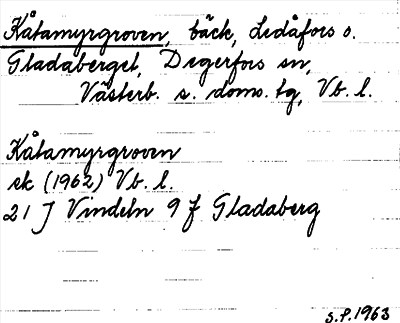 Kåtamyrgroven, bäck, Ledåfors o.
Gladaberget, Degerfors sn,
Västerb. s. doms. tg, Vb. l.
Kåtamyrgroven
ek (1962) Vb. l.
21 J Vindeln 9 f Gladaberg
S.P. 1963